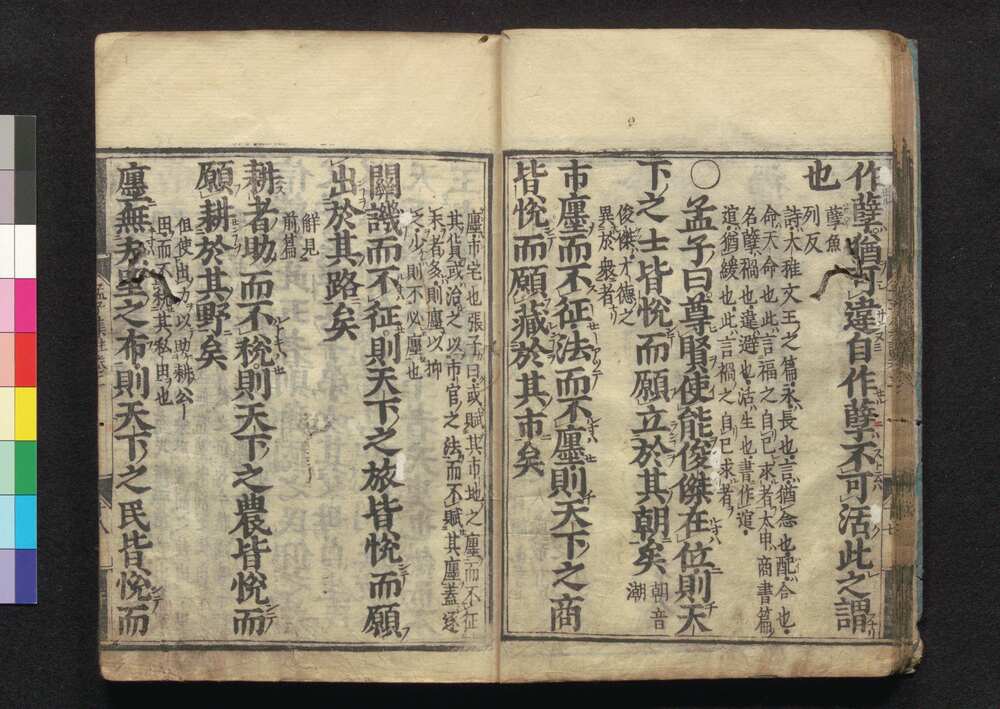 作孽猶可違自作孽不可活此之謂
也
孽魚
列反
詩大雅文王之篇永長也言猶念也配合也
命天命也此言福之自己求者太甲商書篇
名孽禍也違避也活生也書作逭
逭猶緩也此言禍之自己求者
○孟子曰尊賢使能俊傑在位則天
下之士皆悅而願立於其朝矣
朝音
潮
俊傑才德之
異於衆者
市廛而不征法而不廛則天下之商
皆悅而願藏於其市矣
廛市宅也張子曰或賦其市地之廛而不征
其貨或治之以市官之法而不賦其廛蓋逐
末者多則廛以抑
之少則不必廛也
關譏而不征則天下之旅皆悅而願
出於其路矣
解見
前篇
耕者助而不稅則天下之農皆悅而
願耕於其野矣
但使出力以助耕公
田而不稅其私田也
廛無夫里之布則天下之民皆悅而